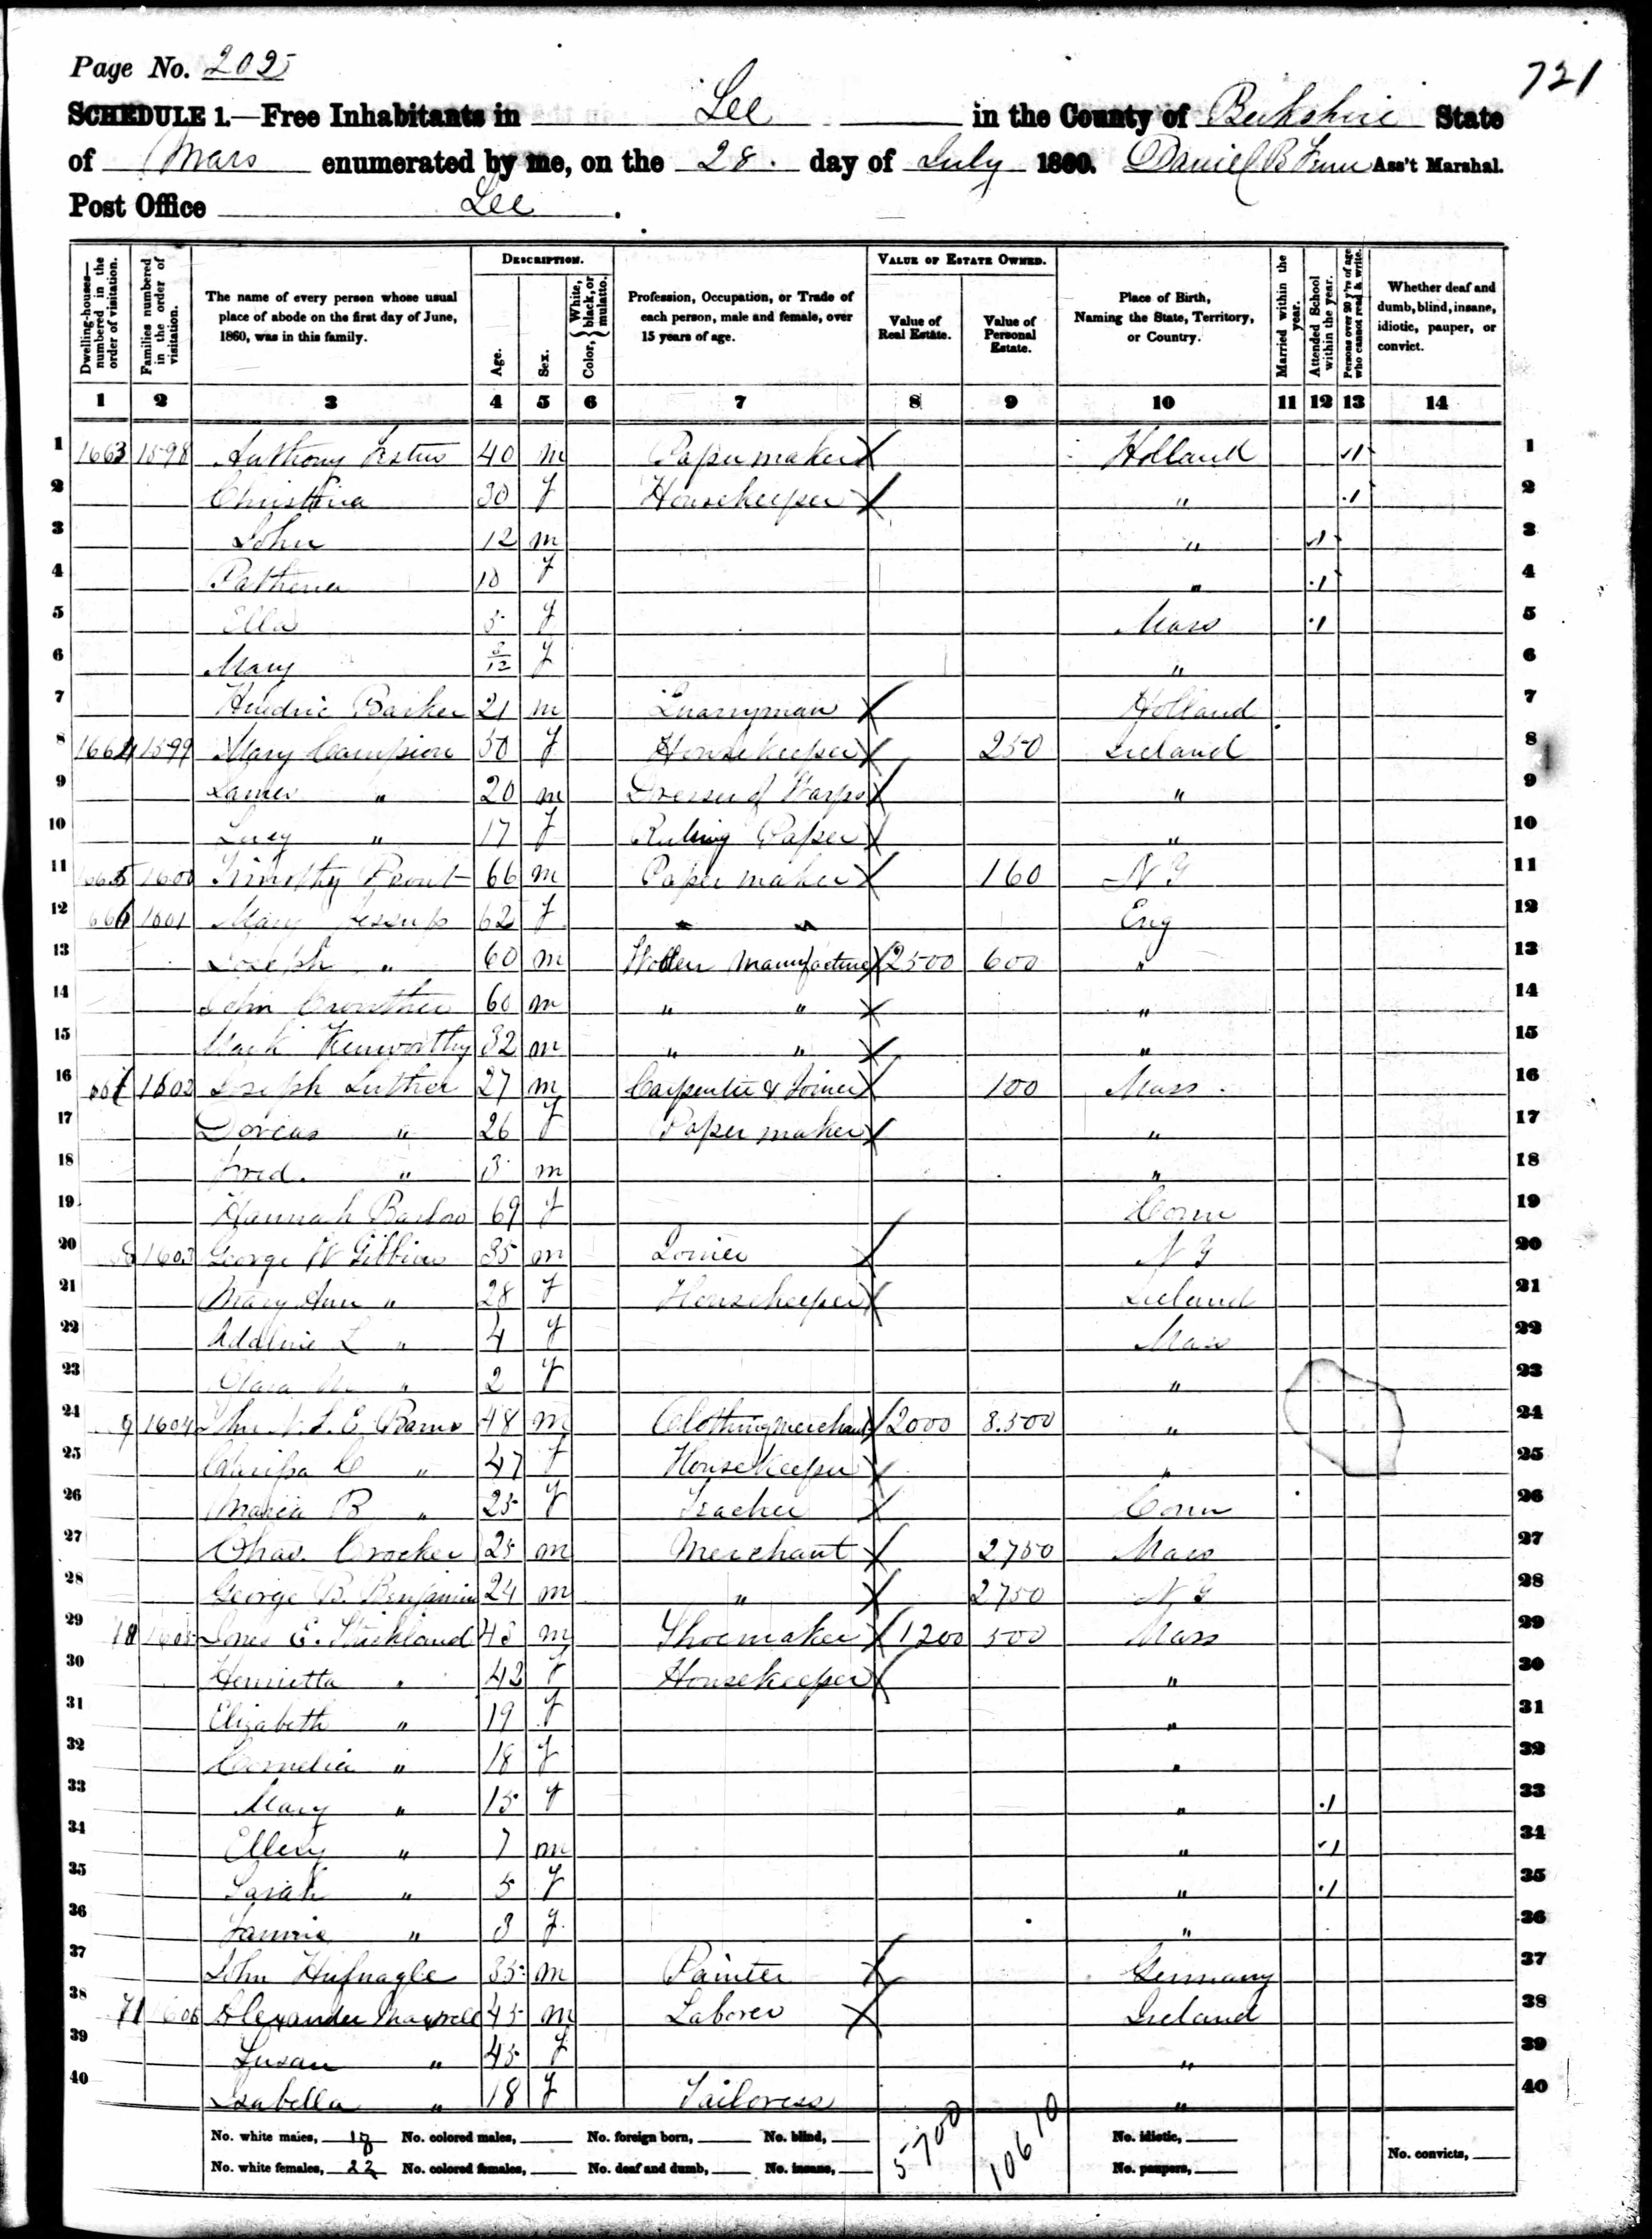 Page No. 205
721
SCHEDULE 1.—Free Inhabitants in Lee in the County of Berkshire State
of Mass enumerated by me, on the 28. day of July 1860. Daniel B Fenn Ass't Marshal.
Post Office Lee.
Dwelling-houses—numbered in the order of visitation. Families numbered in the order of visitation. The name of every person whose usual place of abode on the first day of June, 1860, was in this family. DESCRIPTION. Age. Sex. Color, { White, black, or mulatto. Profession, Occupation, or Trade of each person, male and female, over 15 years of age. VALUE OF ESTATE OWNED. Value of Real Estate. Value of Personal Estate. Place of Birth, Naming the State, Territory, or Country. Married within the year. Attended School within the year. Persons over 20 y'rs of age who cannot read & write. Whether deaf and dumb, blind, insane, idiotic, pauper, or convict.
1 2 3 4 5 6 7 8 9 10 11 12 13 14
1 1663 1598 Anthony 40 m Paper maker X Holland 1 1
2 Christina 30 f Housekeeper X " 1 2
3 John 12 m " 1 3
4 10 f " 1 4
5 Ella 5 f Mass 1 5
6 Mary /12 f " 6
7 Hendric Barker 21 m Quarryman X Holland 7
8 1664 1599 Mary Campion 50 f Housekeeper X 250 Ireland 8
9 James " 20 m Dresser of Warps X " 9
10 Lucy " 17 f Ruling Paper X " 10
11 1665 1600 Timothy Prout 66 m Paper maker X 160 N Y 11
12 666 1601 Mary Jessup 62 f " " Eng 12
13 Joseph " 60 m Wollen Manufacture X 2500 600 " 13
14 John Crowther 60 m " " X " 14
15 Mark Kenworthy 32 m " " X " 15
16 1602 Joseph Luther 27 m Carpenter & Joiner X 100 Mass. 16
17 Dorcas " 26 f Paper maker X " 17
18 Fred. " 3 m " 18
19 Hannah Barlow 69 f Conn 19
20 1603 George W Gibbins 35 m Joiner X N Y 20
21 Mary Ann " 28 f Housekeeper X Ireland 21
22 Adaline L " 4 f Mass 22
23 Clara M " 2 f " 23
24 9 1604 E Barns 48 m Clothing merchant X 2000 8.500 " 24
25 Clarissa C " 47 f Housekeeper X " 25
26 Maria B " 25 f Teacher X Conn 26
27 Chas. Crocker 25 m Merchant X 2750 Mass 27
28 George B. Benjamin 24 m " X 2750 N Y 28
29 1605 E. Strickland 43 m Shoemaker X 1200 500 Mass 29
30 Henrietta " 42 f Housekeeper X " 30
31 Elizabeth " 19 f " 31
32 Cornelia " 18 f " 32
33 Mary " 15 f " 1 33
34 Ellery " 7 m " 1 34
35 Sarah " 5 f " 1 35
36 Fannie " 3 f. " 36
37 John Hufnagle 35 m Painter X Germany 37
38 71 1606 Alexander Maxwell 45 m Laborer X Ireland 38
39 Susan " 45 f " 39
40 Isabella " 18 f Tailoress " 40
No. white males, 18 No. colored males, No. foreign born, No. blind, 5700 10610 No. idiotic,
No. white females, 22 No. colored females, No. deaf and dumb, No. insane, No. paupers, No. convicts,